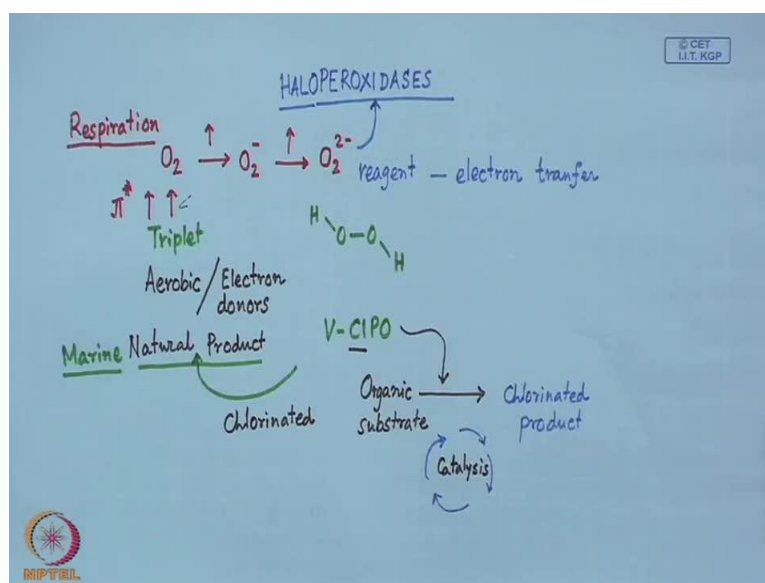 © CET
I.I.T. KGP
HALOPEROXIDASES
Respiration
O₂ → O₂⁻ → O₂²⁻
↑ ↑
reagent — electron tranfer
π* ↑ ↑
Triplet
H
O—O
H
Aerobic / Electron
donors
Marine Natural Product
V-ClPO
Chlorinated
Organic → Chlorinated
substrate product
Catalysis
NPTEL